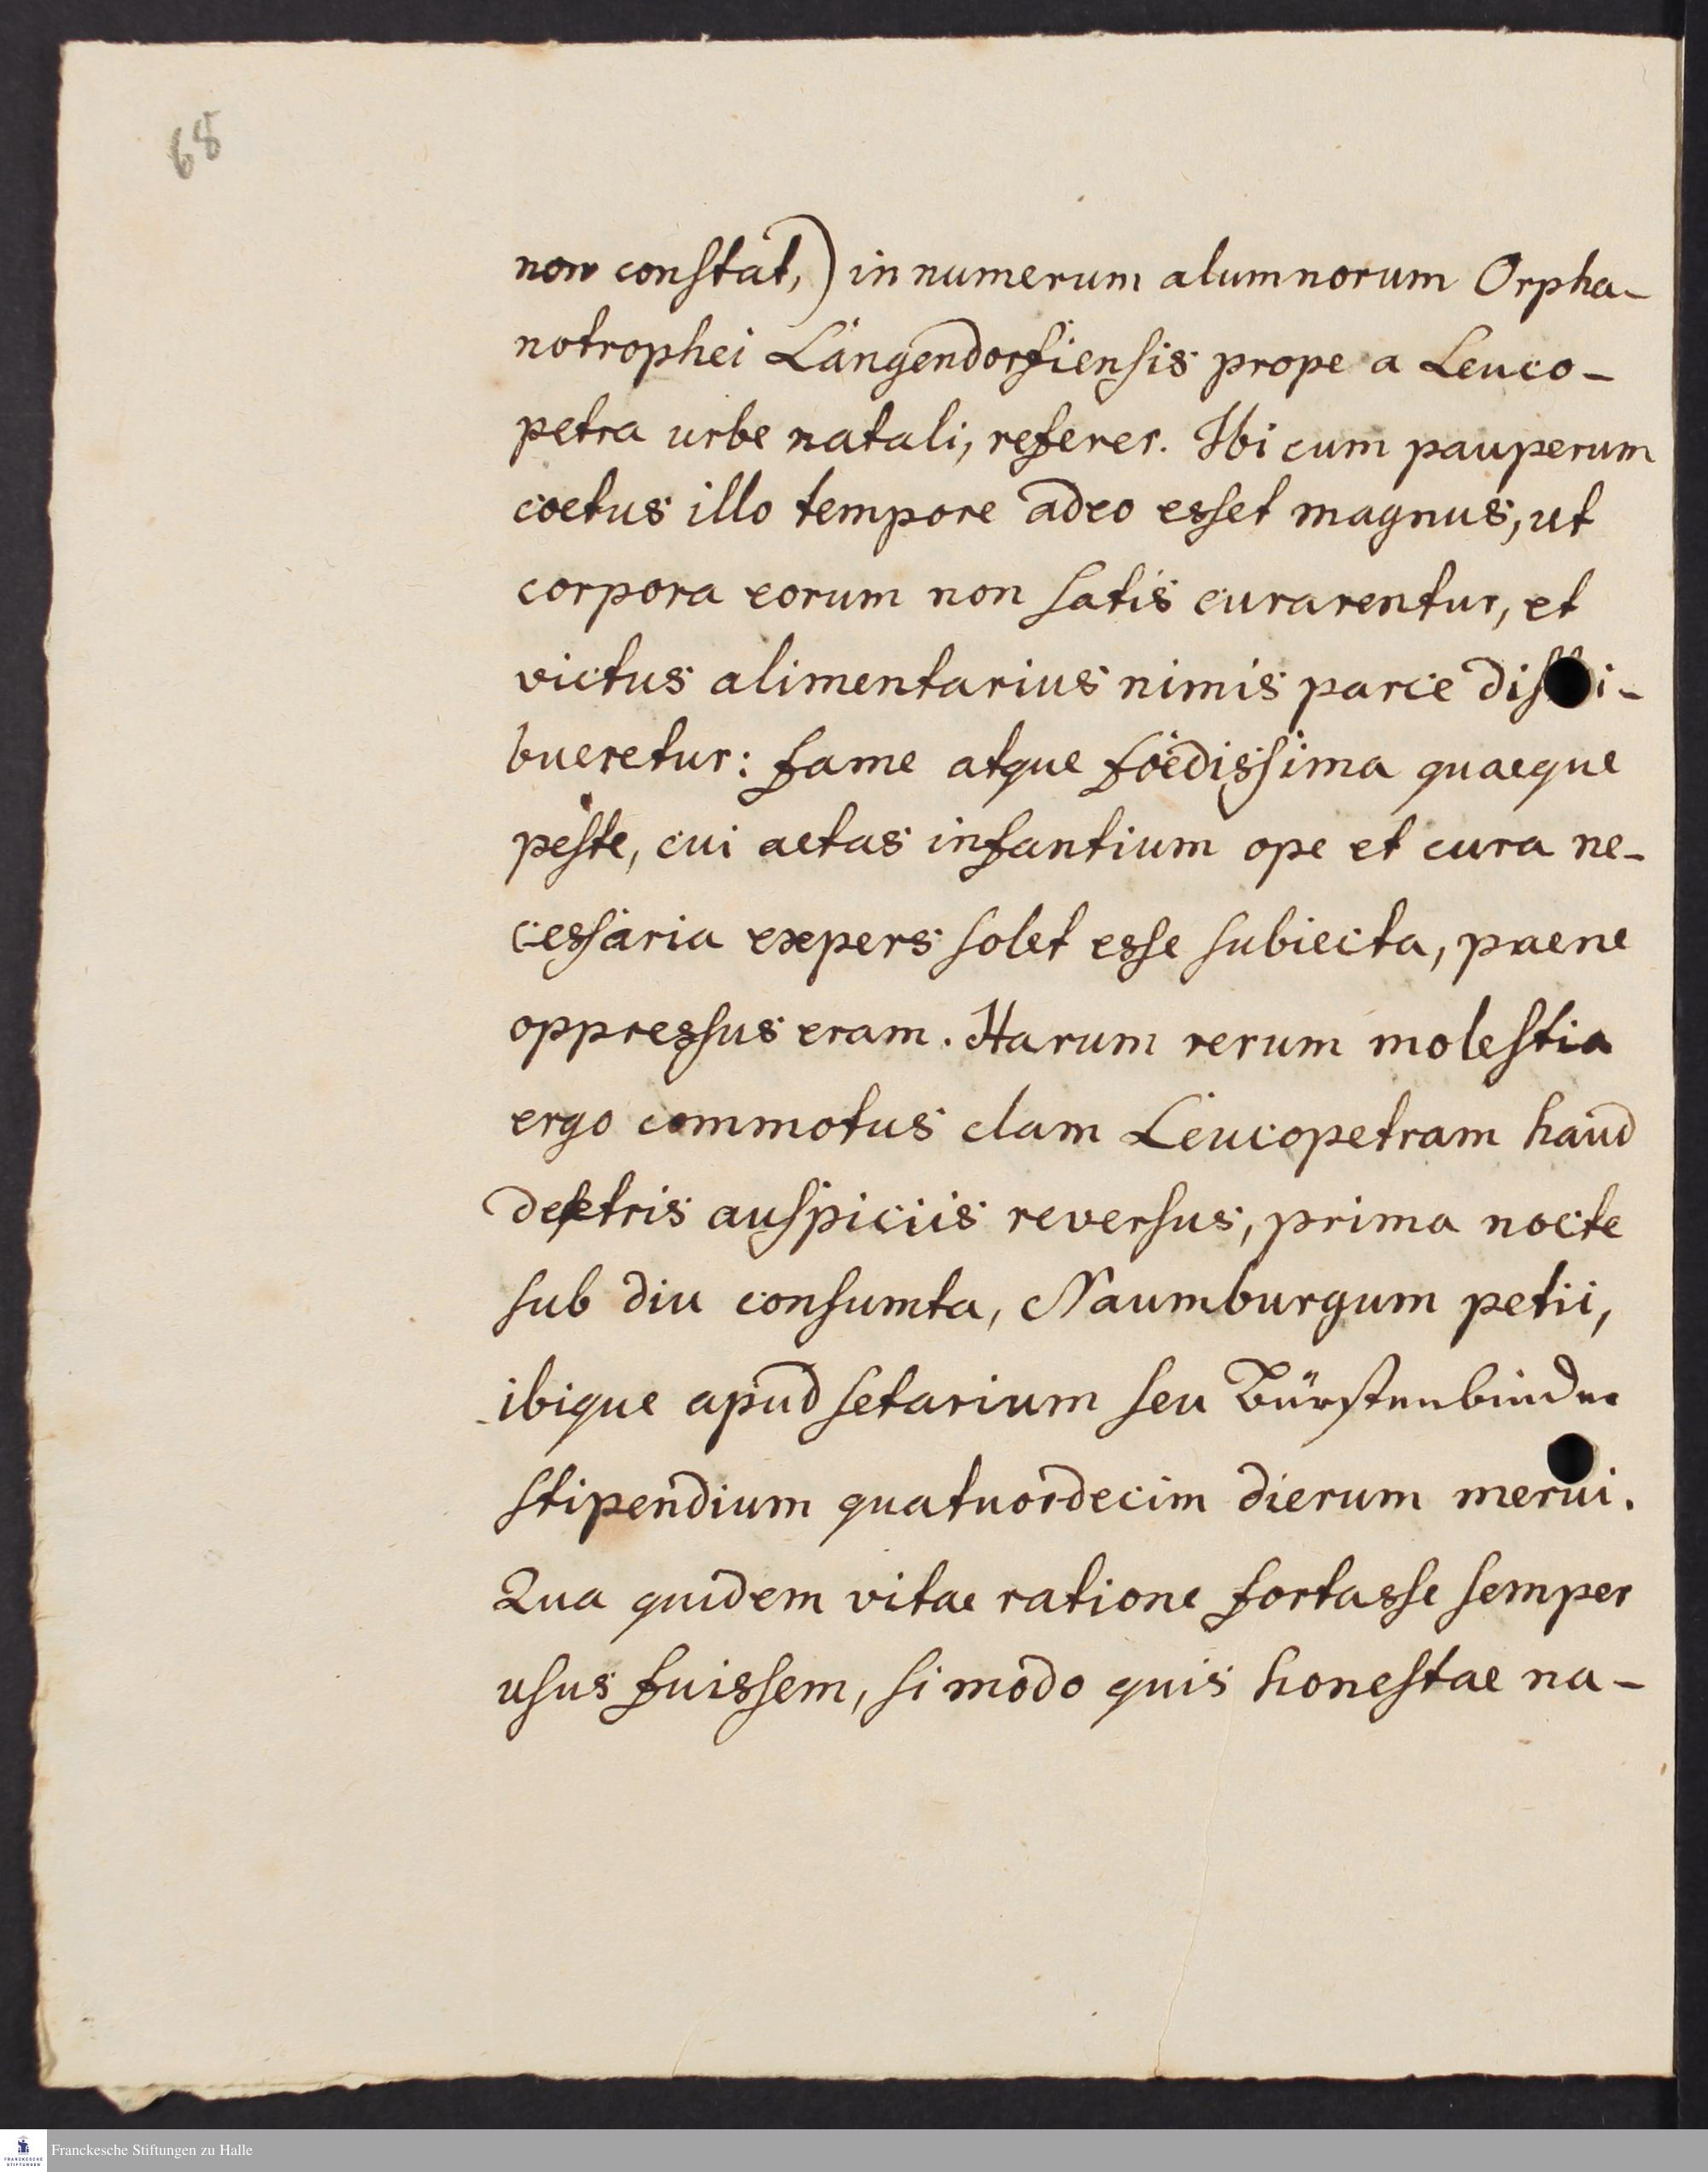 68
non constat,) in numerum alumnorum Orpha-
notrophei Langendorfiensis prope a Leuco-
petra urbe natali, referer. Ibi cum pauperum
coetus illo tempore adeo esset magnus, ut
corpora eorum non satis curarentur, et
victus alimentarius nimis parce
bueretur: fame atque foedissima quaeque
peste, cui aetas infantium ope et cura ne-
cessaria expers solet esse subiecta, paene
oppressus eram. Harum rerum molestia
ergo commotus clam Leucopetram haud
dextris auspiciis reversus, prima nocte
sub diu consumta, Naumburgum petii,
ibique apud setarium seu Bürstenbinder
stipendium quatuordecim dierum merui.
Qua quidem vitae ratione fortasse semper
usus fuissem, si modo quis honestae na-
Franckesche Stiftungen zu Halle
FRANCKESCHE
STIFTUNGEN